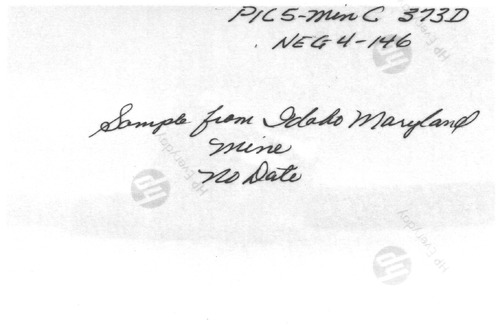 PIC 5-Min C 373D
NEG 4-146
HP Everyday
Sample from Idaho Maryland
Mine
No Date
hp HP Everyday
hp HP Everyday